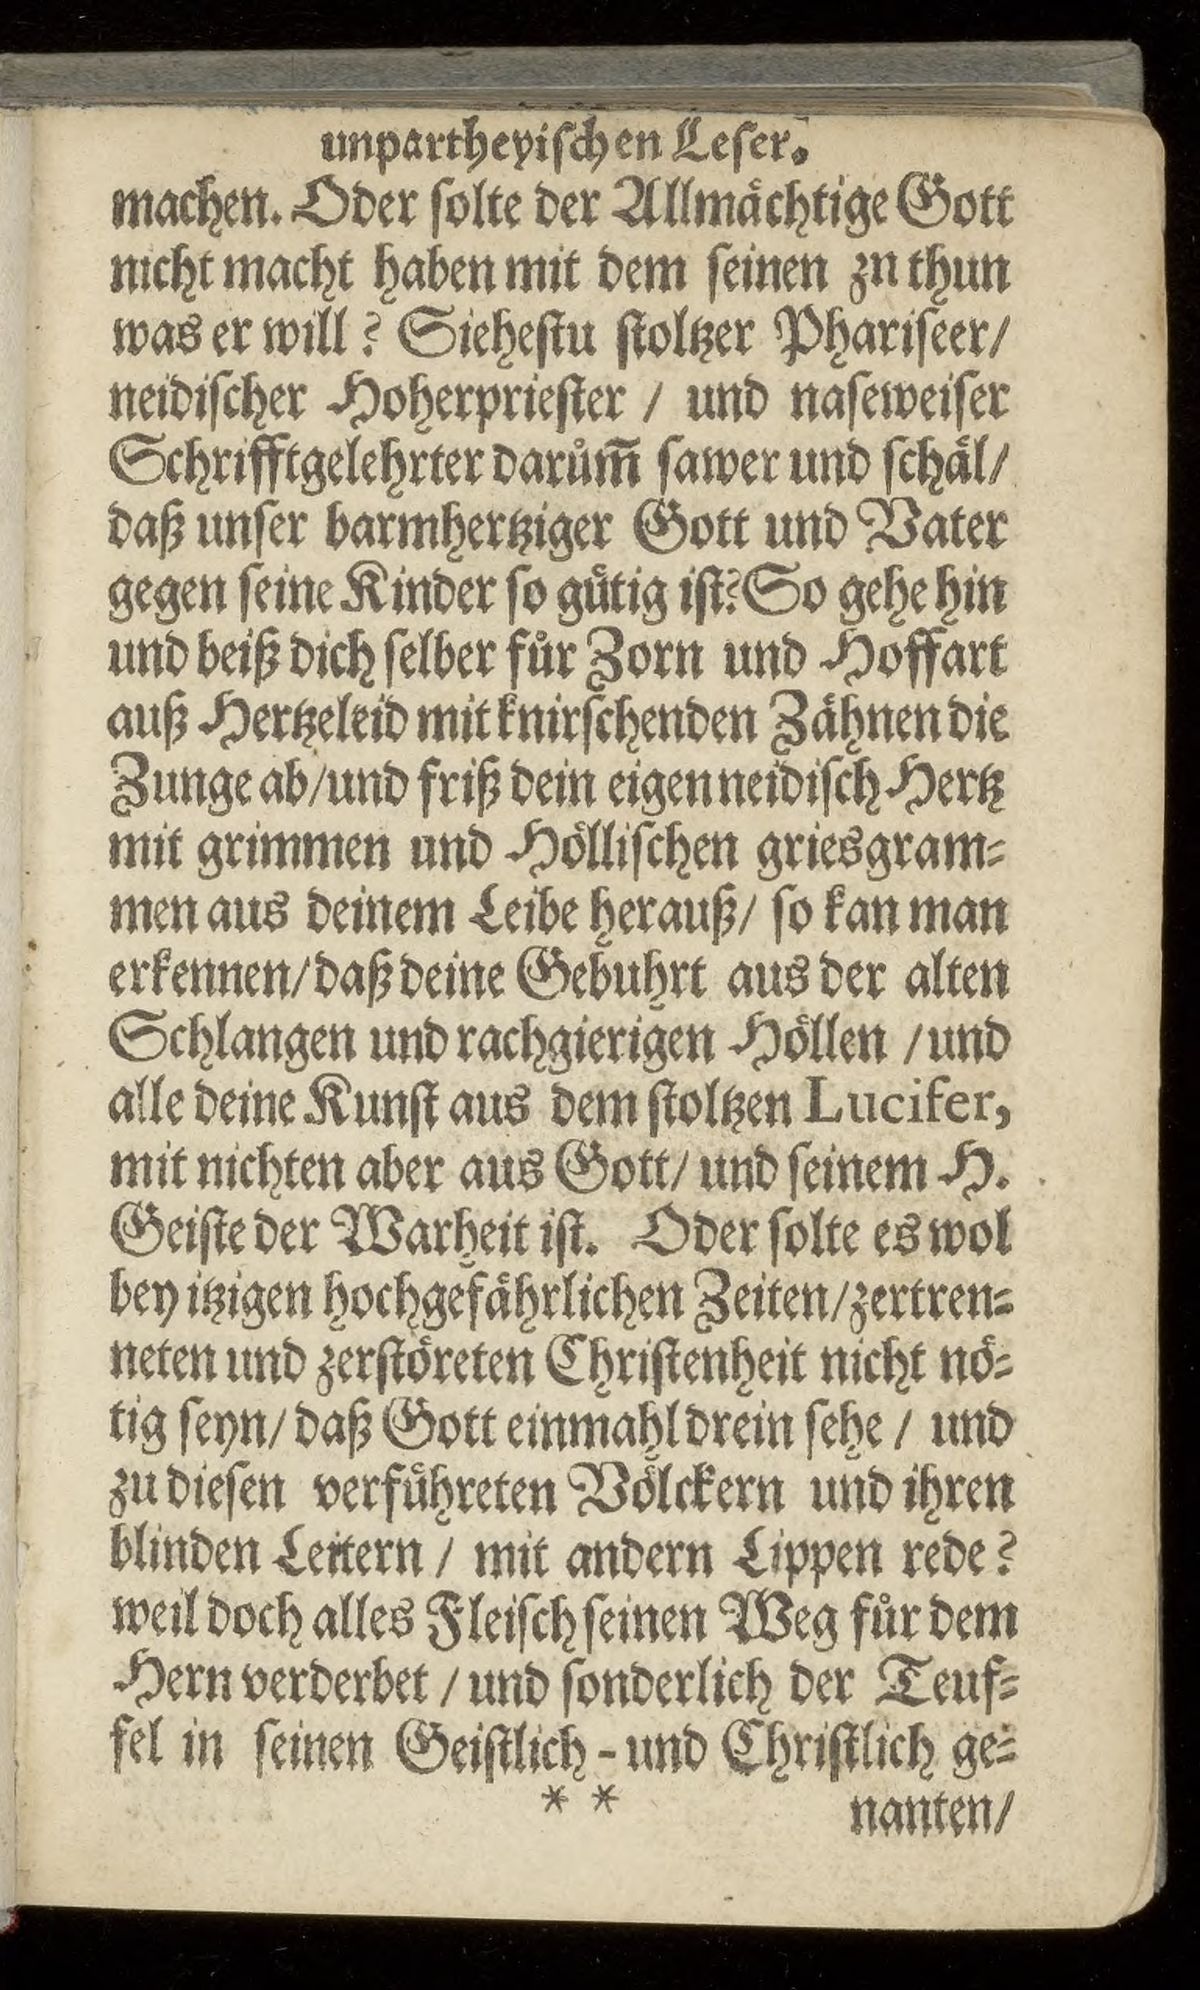 unpartheyiſchen Leſer.
machen. Oder ſolte der Allmaͤchtige Gott
nicht macht haben mit dem ſeinen zn thun
was er will? Sieheſtu ſtoltzer Phariſeer/
neidiſcher Hoherprieſter / und naſeweiſer
Schrifftgelehrter daruͤm̃ ſawer und ſchaͤl/
daß unſer barmhertziger Gott und Vater
gegen ſeine Kinder ſo guͤtig iſt? So gehe hin
und beiß dich ſelber fuͤr Zorn und Hoffart
auß Hertzeleid mit knirſchenden Zaͤhnen die
Zunge ab/und friß dein eigen neidiſch Hertz
mit grimmen und Hoͤlliſchen griesgram⸗
men aus deinem Leibe herauß/ ſo kan man
erkennen/daß deine Gebuhrt aus der alten
Schlangen und rachgierigen Hoͤllen /und
alle deine Kunſt aus dem ſtoltzen Lucifer,
mit nichten aber aus Gott/ und ſeinem H.
Geiſte der Warheit iſt. Oder ſolte es wol
bey itzigen hochgefaͤhrlichen Zeiten/zertren⸗
neten und zerſtoͤreten Chriſtenheit nicht noͤ⸗
tig ſeyn/ daß Gott einmahl drein ſehe / und
zu dieſen verfuͤhreten Voͤlckern und ihren
blinden Leitern / mit andern Lippen rede?
weil doch alles Fleiſch ſeinen Weg fuͤr dem
Hern verderbet / und ſonderlich der Teuf⸗
fel in ſeinen Geiſtlich - und Chriſtlich ge⸗
* * nanten/